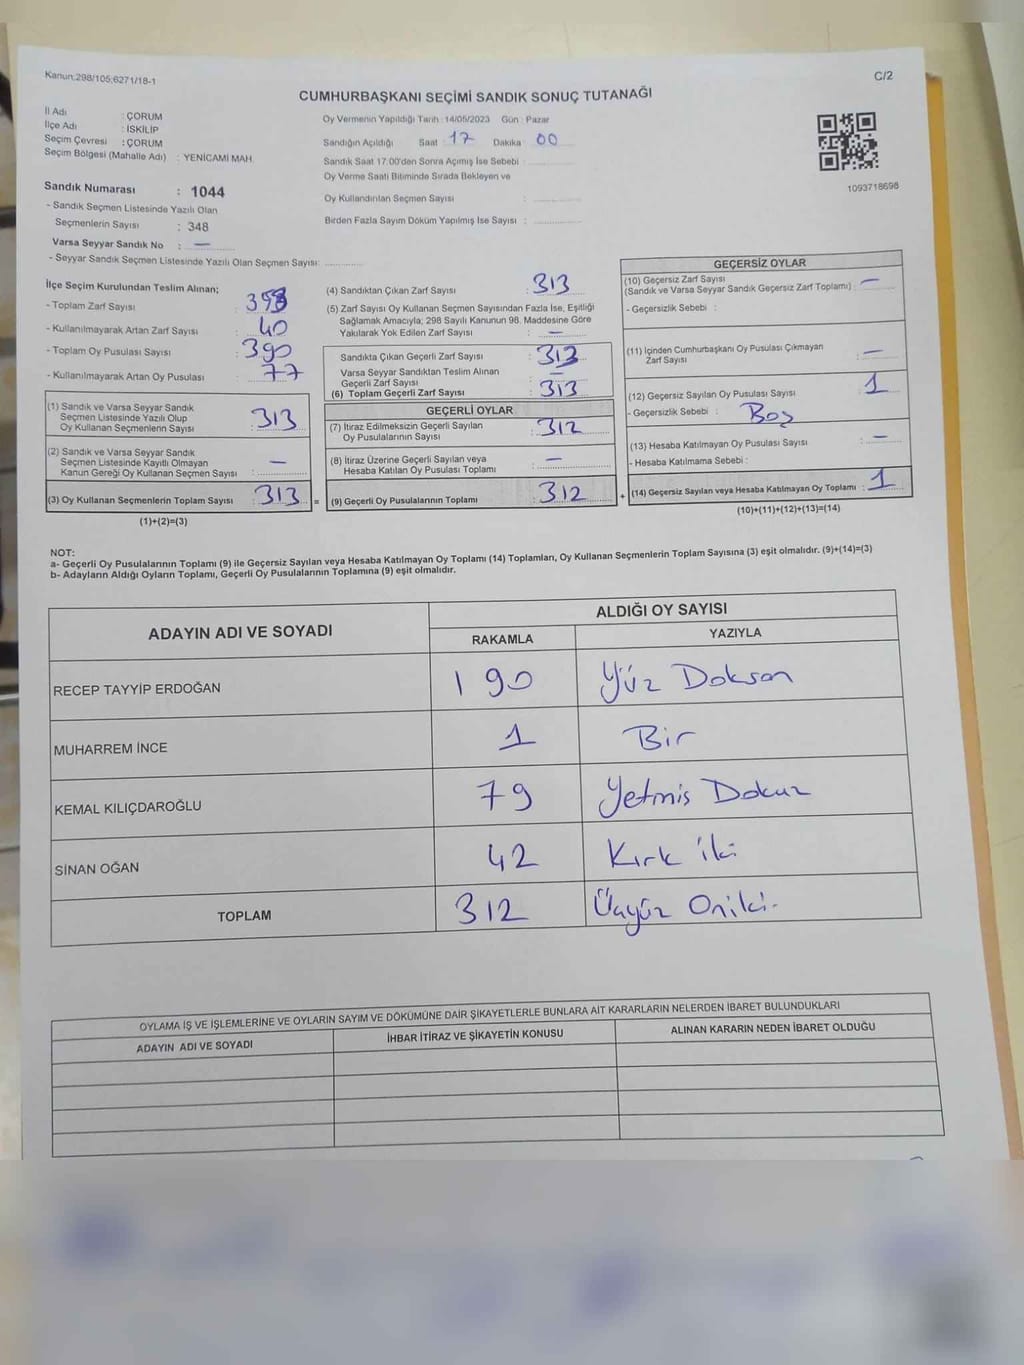 Kanun:298/105;6271/18-1
C/2
CUMHURBAŞKANI SEÇİMİ SANDIK SONUÇ TUTANAĞI
İl Adı : ÇORUM
İlçe Adı : İSKİLİP
Seçim Çevresi : ÇORUM
Seçim Bölgesi (Mahalle Adı) : YENİCAMİ MAH.
Sandık Numarası : 1044
- Sandık Seçmen Listesinde Yazılı Olan
Seçmenlerin Sayısı : 348
Varsa Seyyar Sandık No : —
- Seyyar Sandık Seçmen Listesinde Yazılı Olan Seçmen Sayısı:
Oy Vermenin Yapıldığı Tarih : 14/05/2023 Gün : Pazar
Sandığın Açıldığı Saat : 17 Dakika : 00
Sandık Saat 17:00'den Sonra Açımış İse Sebebi :
Oy Verme Saati Bitiminde Sırada Bekleyen ve
Oy Kullandırılan Seçmen Sayısı :
Birden Fazla Sayım Döküm Yapılmış İse Sayısı :
1093718698
İlçe Seçim Kurulundan Teslim Alınan;
- Toplam Zarf Sayısı :
- Kullanılmayarak Artan Zarf Sayısı : 40
- Toplam Oy Pusulası Sayısı : 390
- Kullanılmayarak Artan Oy Pusulası : 77
(1) Sandık ve Varsa Seyyar Sandık
Seçmen Listesinde Yazılı Olup
Oy Kullanan Seçmenlerin Sayısı : 313
(2) Sandık ve Varsa Seyyar Sandık
Seçmen Listesinde Kayıtlı Olmayan
Kanun Gereği Oy Kullanan Seçmen Sayısı : —
(3) Oy Kullanan Seçmenlerin Toplam Sayısı : 313 =
(1)+(2)=(3)
(4) Sandıktan Çıkan Zarf Sayısı : 313
(5) Zarf Sayısı Oy Kullanan Seçmen Sayısından Fazla İse, Eşitliği
Sağlamak Amacıyla; 298 Sayılı Kanunun 98. Maddesine Göre
Yakılarak Yok Edilen Zarf Sayısı : —
Sandıkta Çıkan Geçerli Zarf Sayısı : 313
Varsa Seyyar Sandıktan Teslim Alınan
Geçerli Zarf Sayısı : —
(6) Toplam Geçerli Zarf Sayısı : 313
GEÇERLİ OYLAR
(7) İtiraz Edilmeksizin Geçerli Sayılan
Oy Pusulalarının Sayısı : 312
(8) İtiraz Üzerine Geçerli Sayılan veya
Hesaba Katılan Oy Pusulası Toplamı : —
(9) Geçerli Oy Pusulalarının Toplamı : 312 +
GEÇERSİZ OYLAR
(10) Geçersiz Zarf Sayısı
(Sandık ve Varsa Seyyar Sandık Geçersiz Zarf Toplamı) : —
- Geçersizlik Sebebi :
(11) İçinden Cumhurbaşkanı Oy Pusulası Çıkmayan
Zarf Sayısı : —
(12) Geçersiz Sayılan Oy Pusulası Sayısı : 1
- Geçersizlik Sebebi : Boş
(13) Hesaba Katılmayan Oy Pusulası Sayısı : —
- Hesaba Katılmama Sebebi :
(14) Geçersiz Sayılan veya Hesaba Katılmayan Oy Toplamı : 1
(10)+(11)+(12)+(13)=(14)
NOT:
a- Geçerli Oy Pusulalarının Toplamı (9) ile Geçersiz Sayılan veya Hesaba Katılmayan Oy Toplamı (14) Toplamları, Oy Kullanan Seçmenlerin Toplam Sayısına (3) eşit olmalıdır. (9)+(14)=(3)
b- Adayların Aldığı Oyların Toplamı, Geçerli Oy Pusulalarının Toplamına (9) eşit olmalıdır.
ADAYIN ADI VE SOYADI ALDIĞI OY SAYISI
RAKAMLA YAZIYLA
RECEP TAYYİP ERDOĞAN 190 Yüz Doksan
MUHARREM İNCE 1 Bir
KEMAL KILIÇDAROĞLU 79 Yetmis Dokuz
SİNAN OĞAN 42 Kırk iki
TOPLAM 312 Üçyüz Oniki
OYLAMA İŞ VE İŞLEMLERİNE VE OYLARIN SAYIM VE DÖKÜMÜNE DAİR ŞİKAYETLERLE BUNLARA AİT KARARLARIN NELERDEN İBARET BULUNDUKLARI
ADAYIN ADI VE SOYADI İHBAR İTİRAZ VE ŞİKAYETİN KONUSU ALINAN KARARIN NEDEN İBARET OLDUĞU